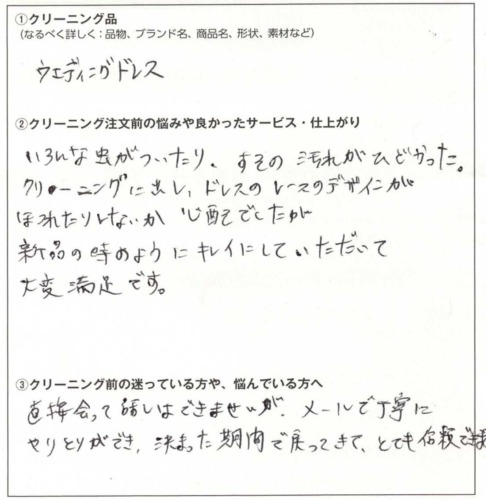 ①クリーニング品
（なるべく詳しく：品物、ブランド名、商品名、形状、素材など）
ウエディングドレス
②クリーニング注文前の悩みや良かったサービス・仕上がり
いろんな虫がついたり、すその汚れがひどかった。
クリーニングに出し、ドレスのレースのデザインが
ほつれたりしないか心配でしたが
新品の時のようにキレイにしていただいて
大変満足です。
③クリーニング前の迷っている方や、悩んでいる方へ
直接会って話しはできませんが、メールで丁寧に
やりとりができ、決まった期間で戻ってきて、とても信頼でき